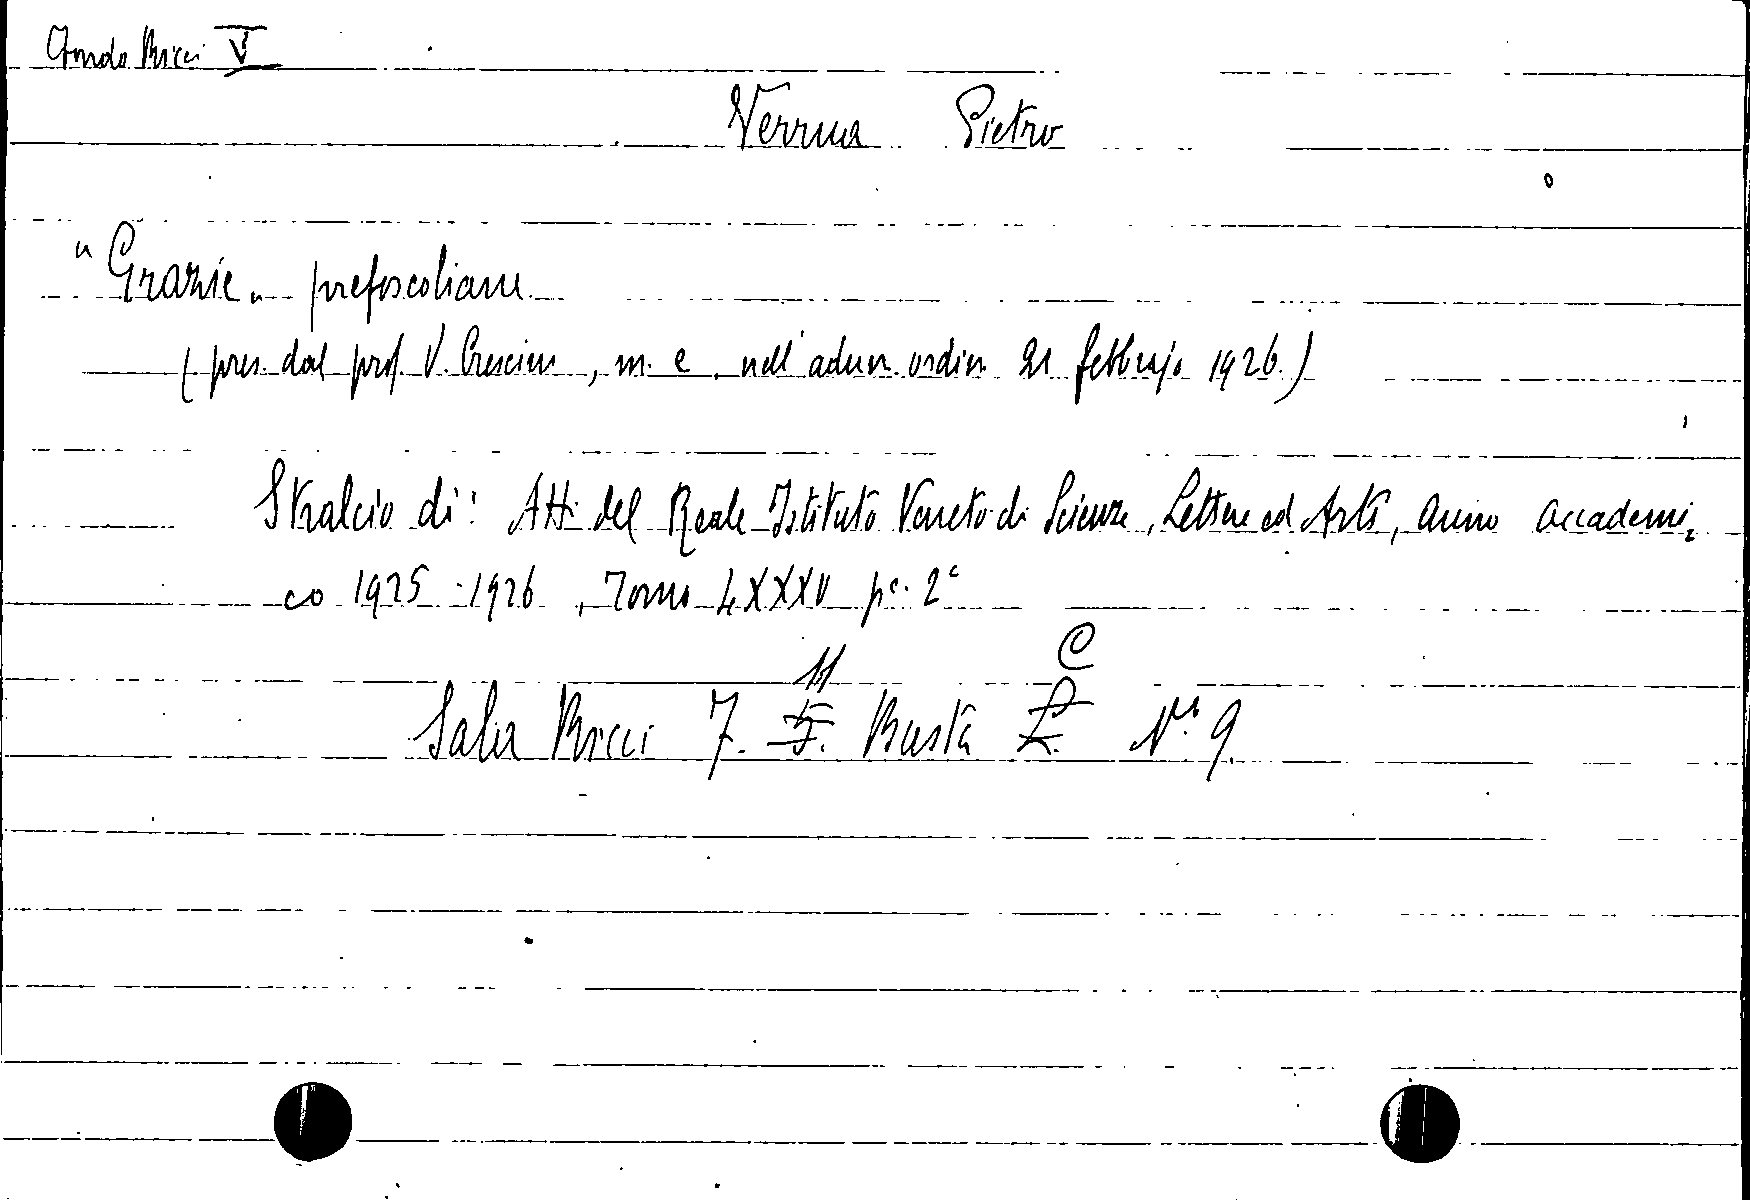 Fondo Ricci V
Verrua Pietro
"Grazie" prefoscoliane
(pres. dal prof. V. Crescini, m. e. nell'adun. ordin. 21 febbrajo 1926.)
Stralcio di: Atti del Reale Istituto Veneto di Scienze, Lettere ed Arti, anno accademi,
co 1925-1926, Tomo LXXXV pe. 2a
11 C
Sala Ricci 7. 5. Busta L. No. 9.